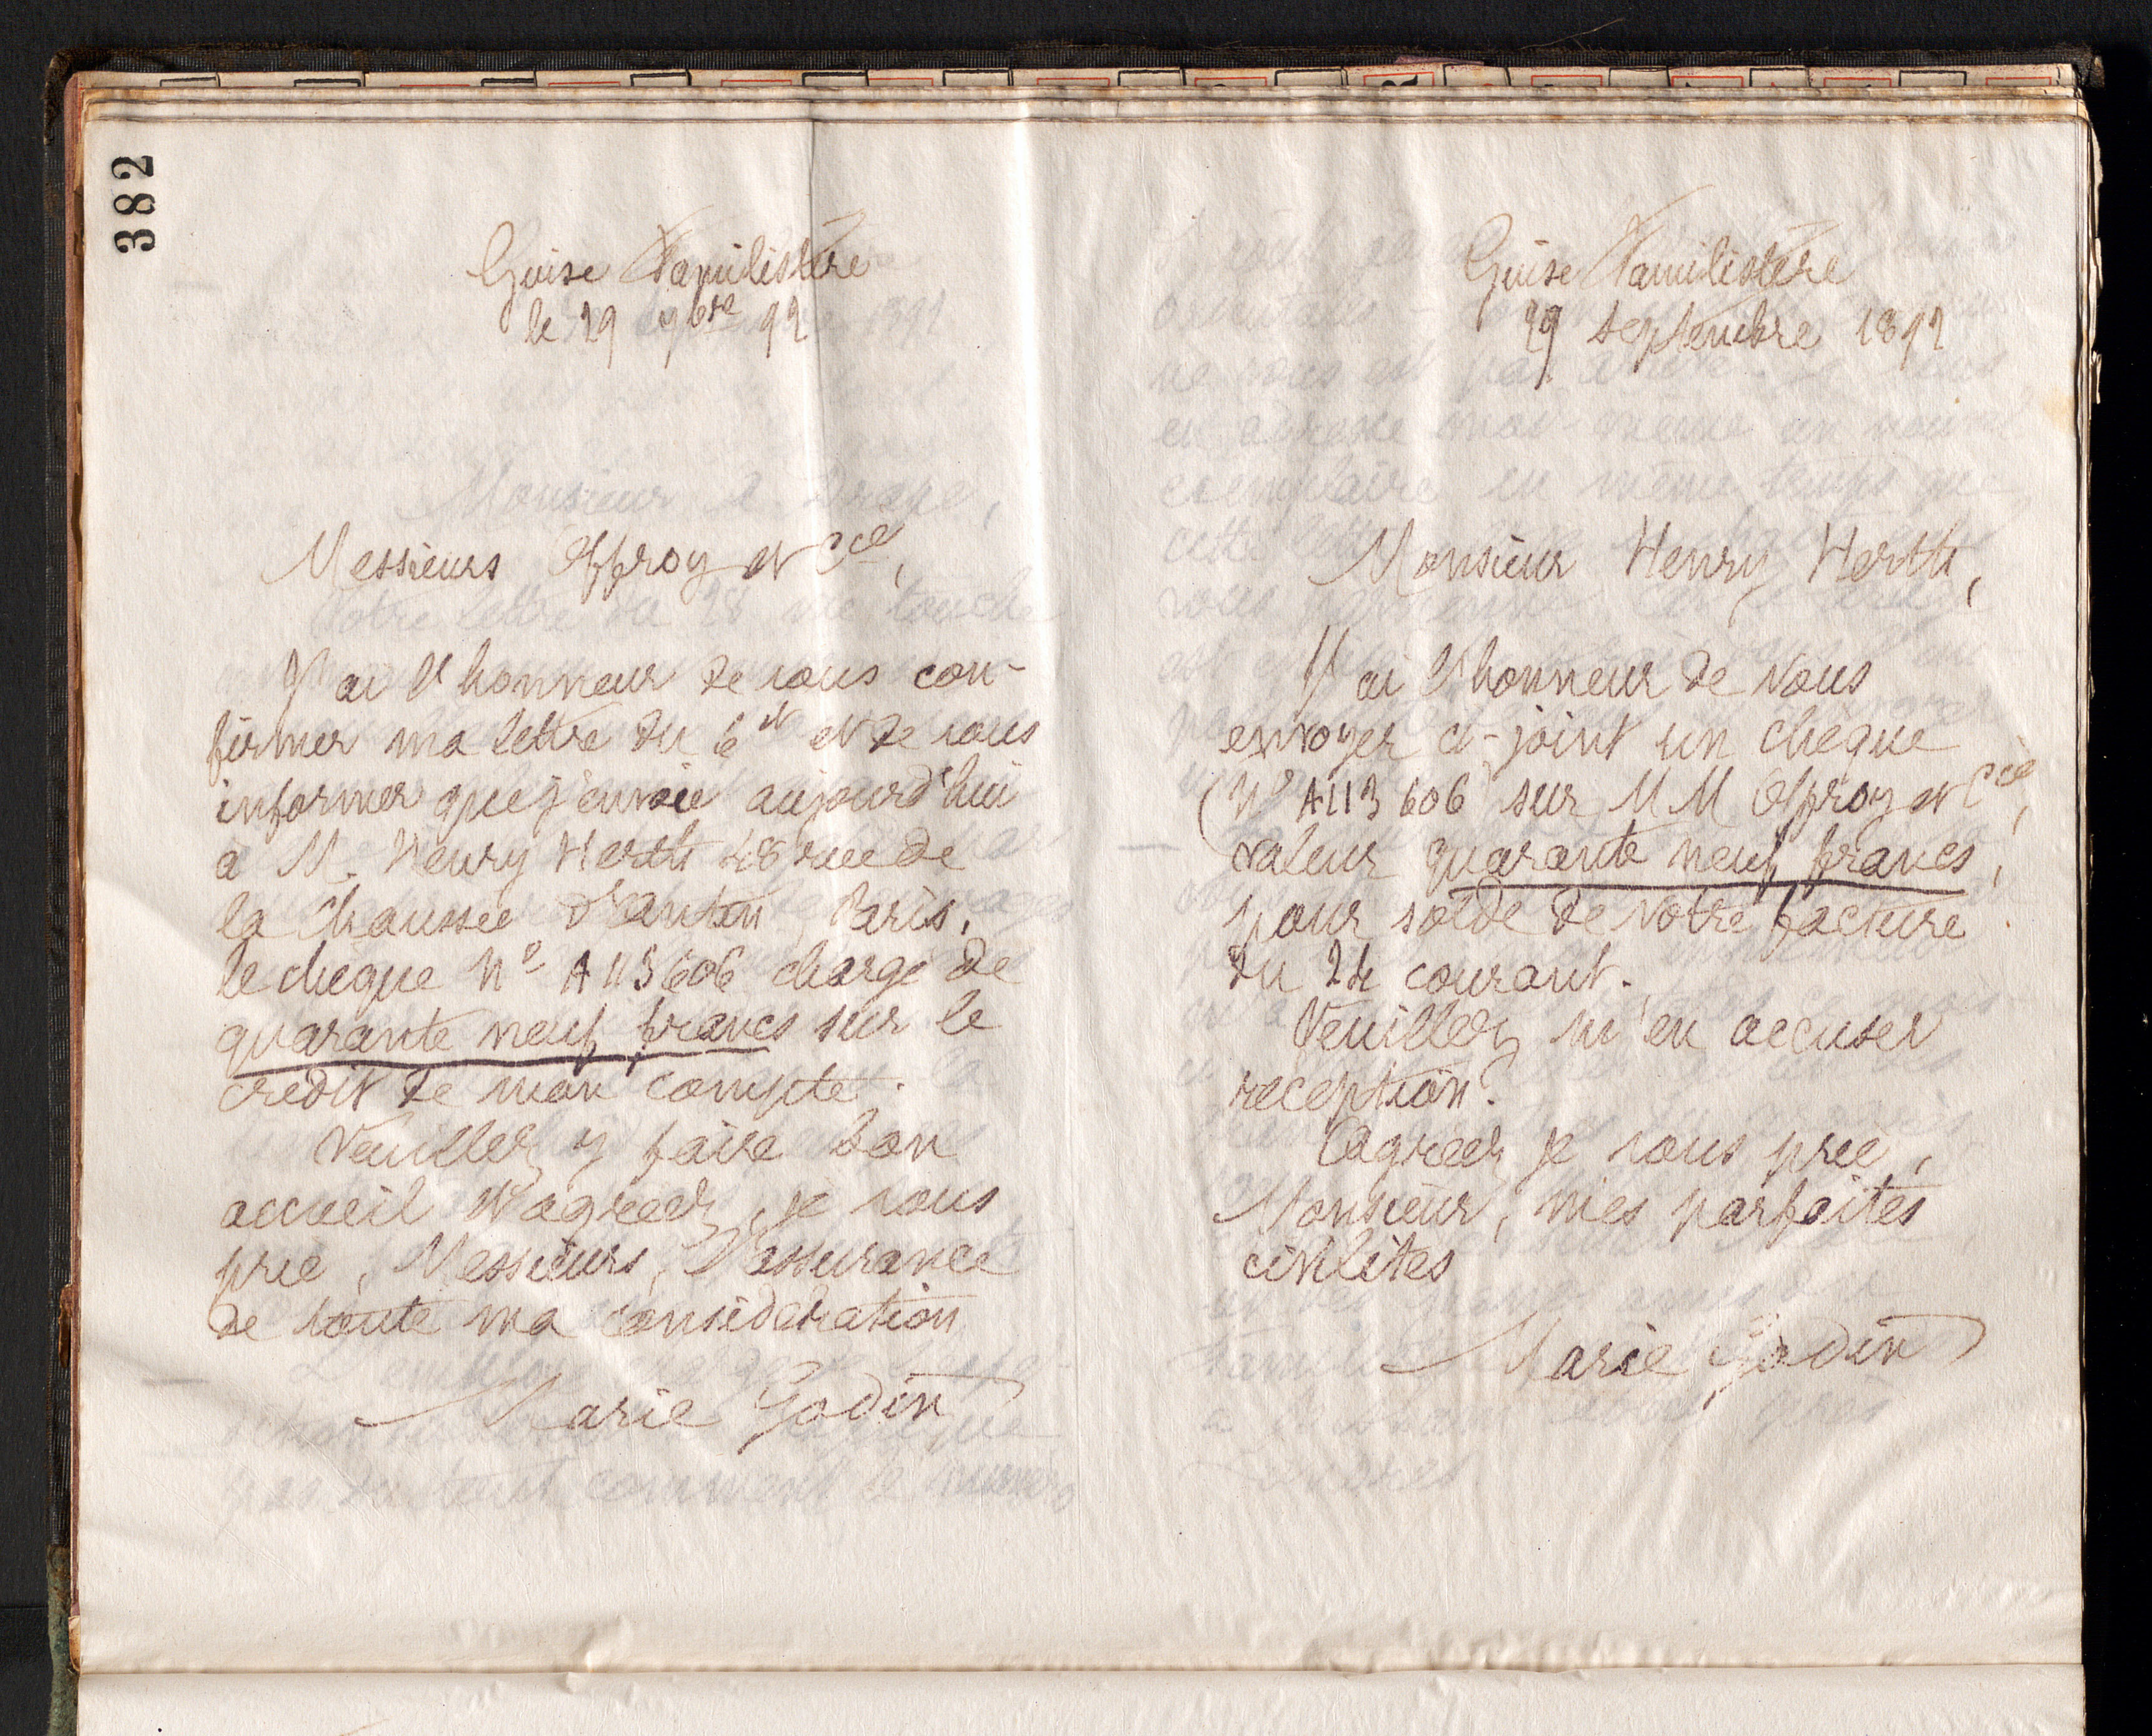 382
Guise Familistère
le 29 7bre 92
Messieurs Offroy et Cie,
J'ai l'honneur de vous con-
firmer ma lettre du 6 ct et de vous
informer que j'envoie aujourd'hui
a M. Henry Herth 48 rue de
la Chaussee d'antin, Paris,
le cheque No A113606 charge de
quarante neuf francs sur le
credit de mon compte.
Veuillez y faire bon
accueil et agreer, je vous
prie, Messieurs, l'assurance
de toute ma consideration
Marie Godin
Guise Familistère
29 Septembre 1892
Monsieur Henry Herth,
J'ai l'honneur de vous
envoyer ci-joint un cheque
(No A113606 sur MM Offroy et Cie,
valeur quarante neuf francs,
pour solde de votre facture
du 24 courant.
Veuillez m'en accuser
reception.
Agreez je vous prie,
Monsieur, mes parfaites
civilites
Marie Godin